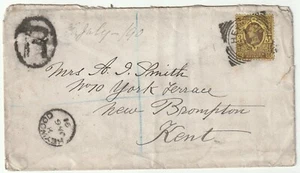 R
July - 90
Mrs A. J. Smith
No 10 York Terrace
New Brompton
Kent.